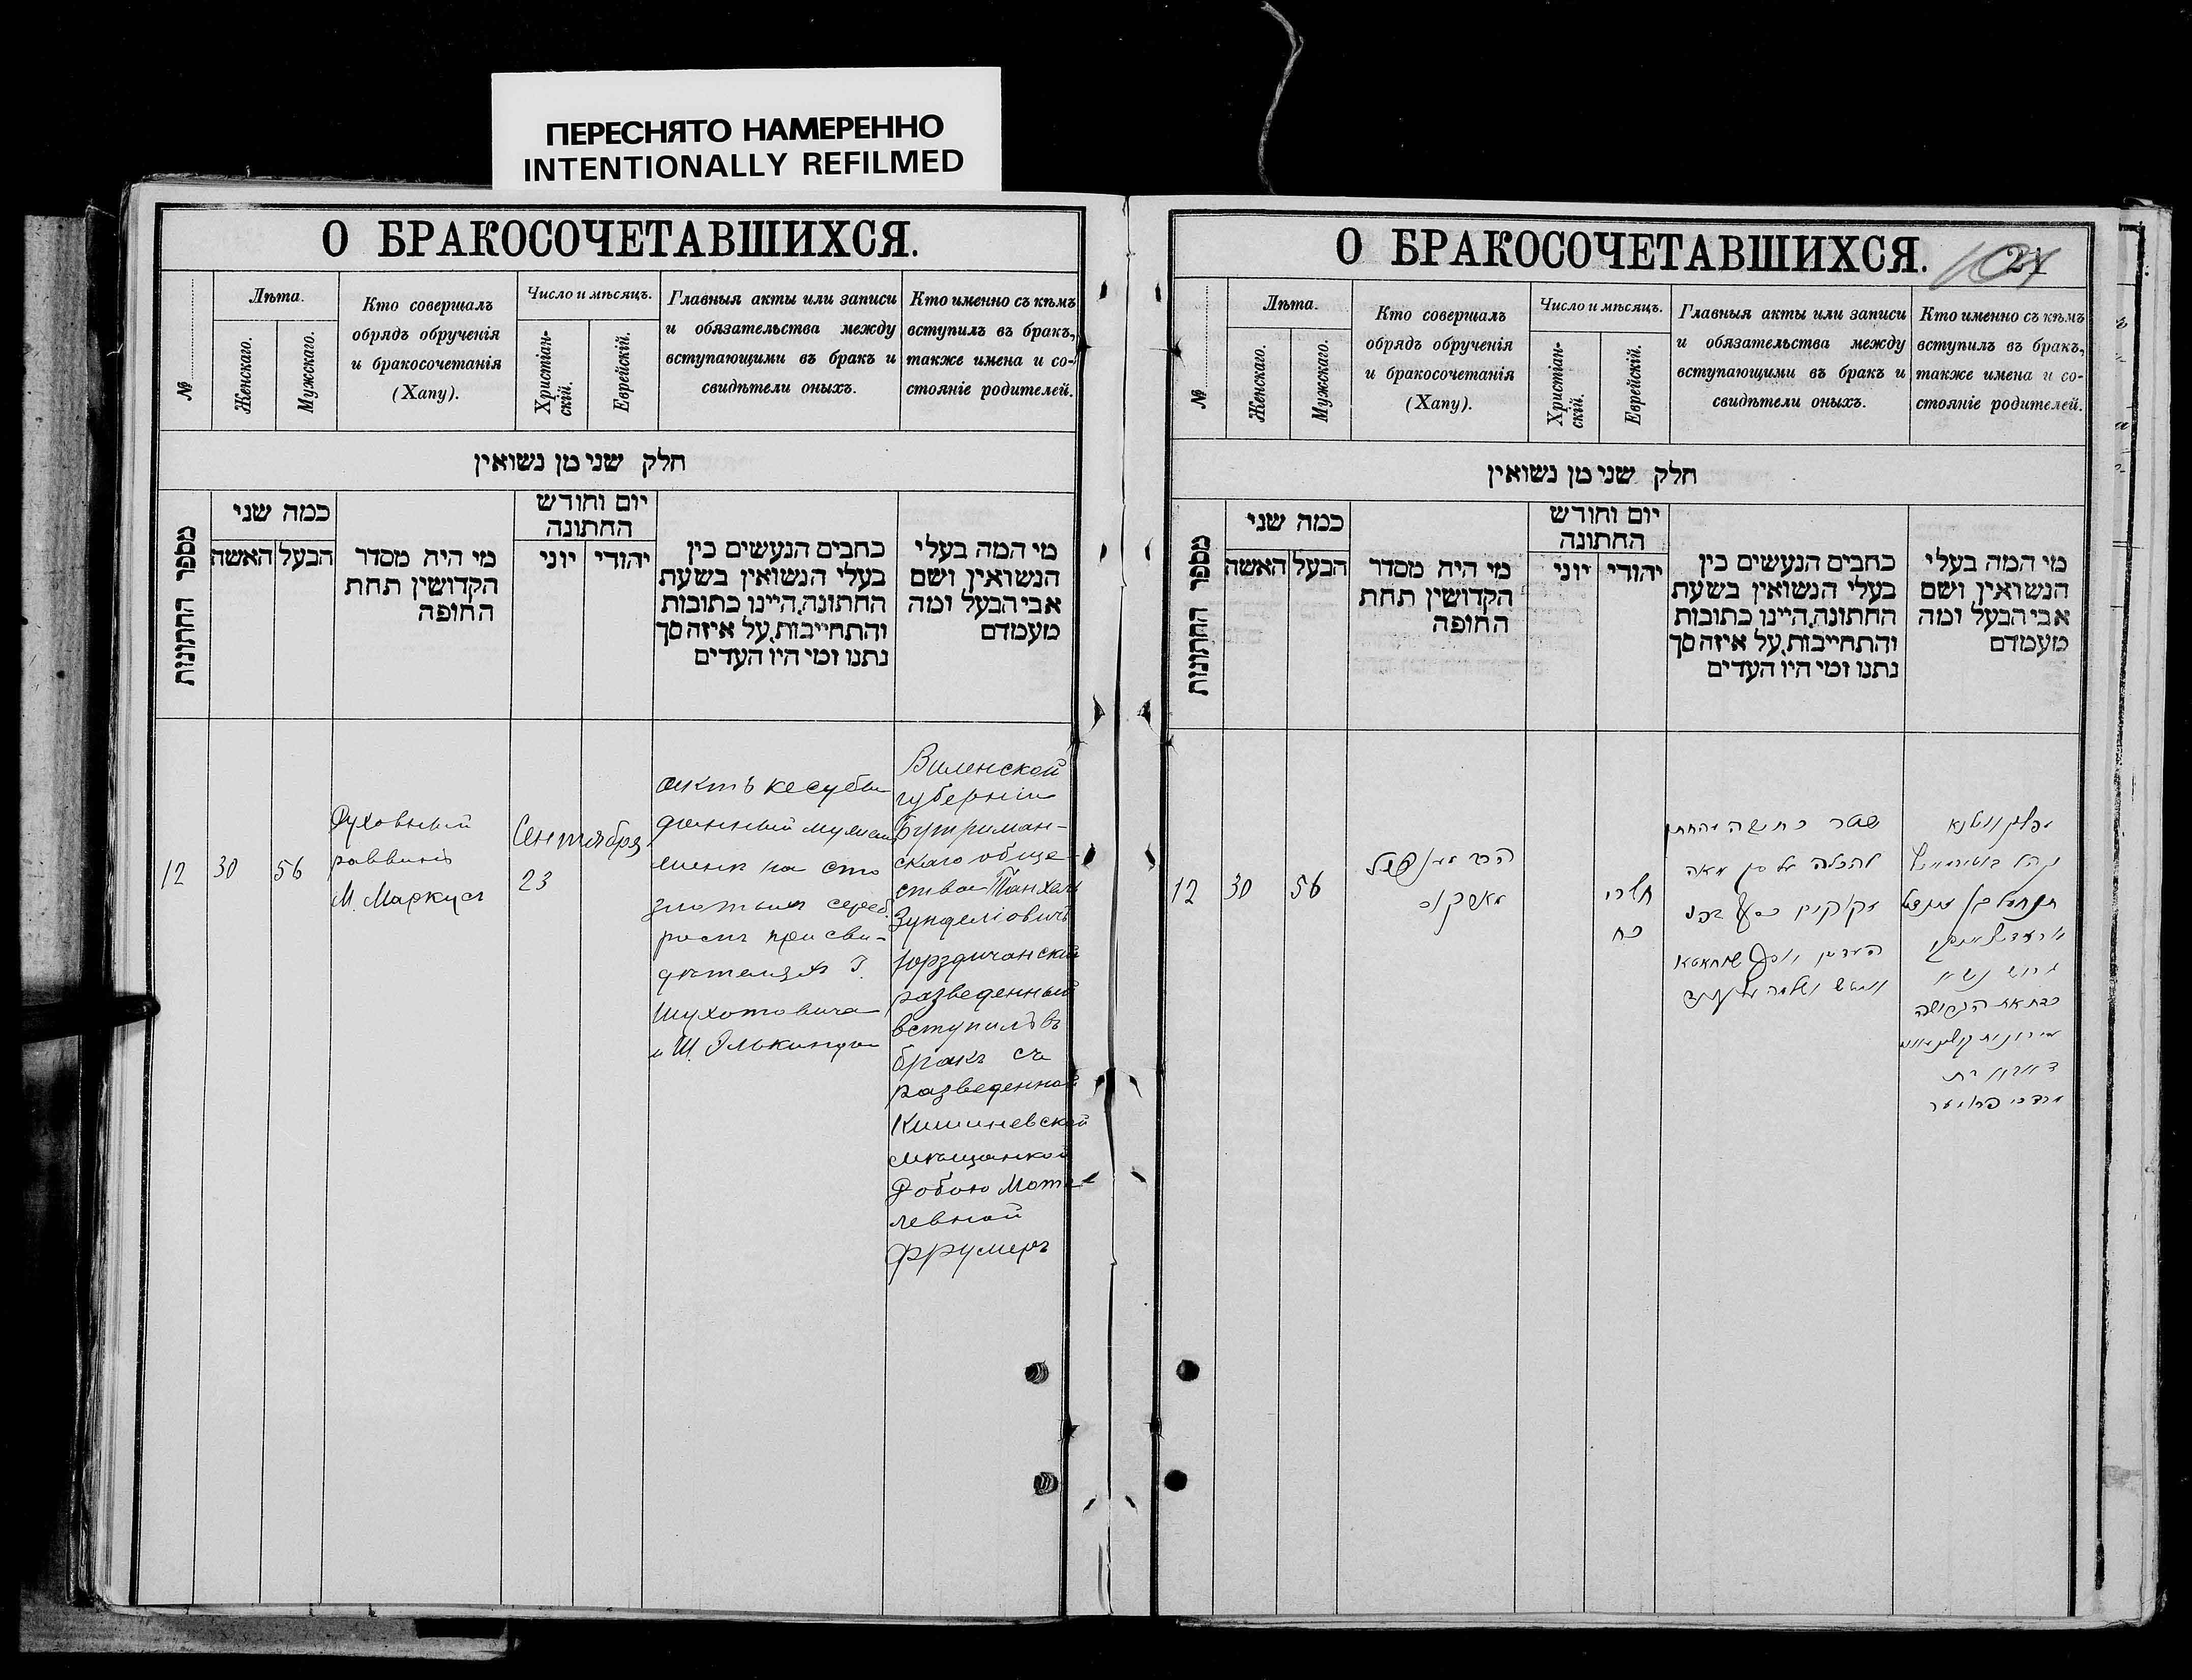 ПЕРЕСНЯТО НАМЕРЕННО
INTENTIONALLY REFILMED
О БРАКОСОЧЕТАВШИХСЯ.
№
Лѣта.
Женскаго.
Мужскаго.
Кто совершалъ
обрядъ обрученія
и бракосочетанія
(Хапу).
Число и мѣсяцъ.
Христіан-
скій.
Еврейскій.
Главныя акты или записи
и обязательства между
вступающими въ бракъ и
свидѣтели оныхъ.
Кто именно съ кѣмъ
вступилъ въ бракъ,
также имена и со-
стояніе родителей.
חלק שני מן נשואין
מספר החתונות
כמה שני
הבעל
האשה
מי היה מסדר
הקדושין תחת
החופה
יום וחודש
החתונה
יהודי
יוני
כתבים הנעשים בין
בעלי הנשואין בשעת
החתונה, היינו כתובות
והתחייבות, על איזה סך
נתנו ומי היו העדים
מי המה בעלי
הנשואין ושם
אבי הבעל ומה
מעמדם
12
30
56
Духовный
раввинъ
М. Маркусъ
Сентября
23
актъ кесубы
данный мужемъ
женѣ на сто
злотыхъ сереб.
ромъ при сви-
дѣтеляхъ I.
Шухотовича
и Ш. Элькинда
Виленской
губерніи
Бутриман-
скаго обще-
ства Танхель
Зунделіовичъ
Юрздичанскій
разведенный
вступилъ въ
бракъ съ
разведенной
Кишиневской
мѣщанкой
Добою Мотe-
левной
Фрумеръ
О БРАКОСОЧЕТАВШИХСЯ.
21
№
Лѣта.
Женскаго.
Мужскаго.
Кто совершалъ
обрядъ обрученія
и бракосочетанія
(Хапу).
Число и мѣсяцъ.
Христіан-
скій.
Еврейскій.
Главныя акты или записи
и обязательства между
вступающими въ бракъ и
свидѣтели оныхъ.
Кто именно съ кѣмъ
вступилъ въ бракъ,
также имена и со-
стояніе родителей.
חלק שני מן נשואין
מספר החתונות
כמה שני
הבעל
האשה
מי היה מסדר
הקדושין תחת
החופה
יום וחודש
החתונה
יהודי
יוני
כתבים הנעשים בין
בעלי הנשואין בשעת
החתונה, היינו כתובות
והתחייבות, על איזה סך
נתנו ומי היו העדים
מי המה בעלי
הנשואין ושם
אבי הבעל ומה
מעמדם
12
30
56
הרב
מארקוס
תשרי
כח
שטר כתובה מהחתן
להכלה על סך מאה
זקוקים כסף
העדים יוסף